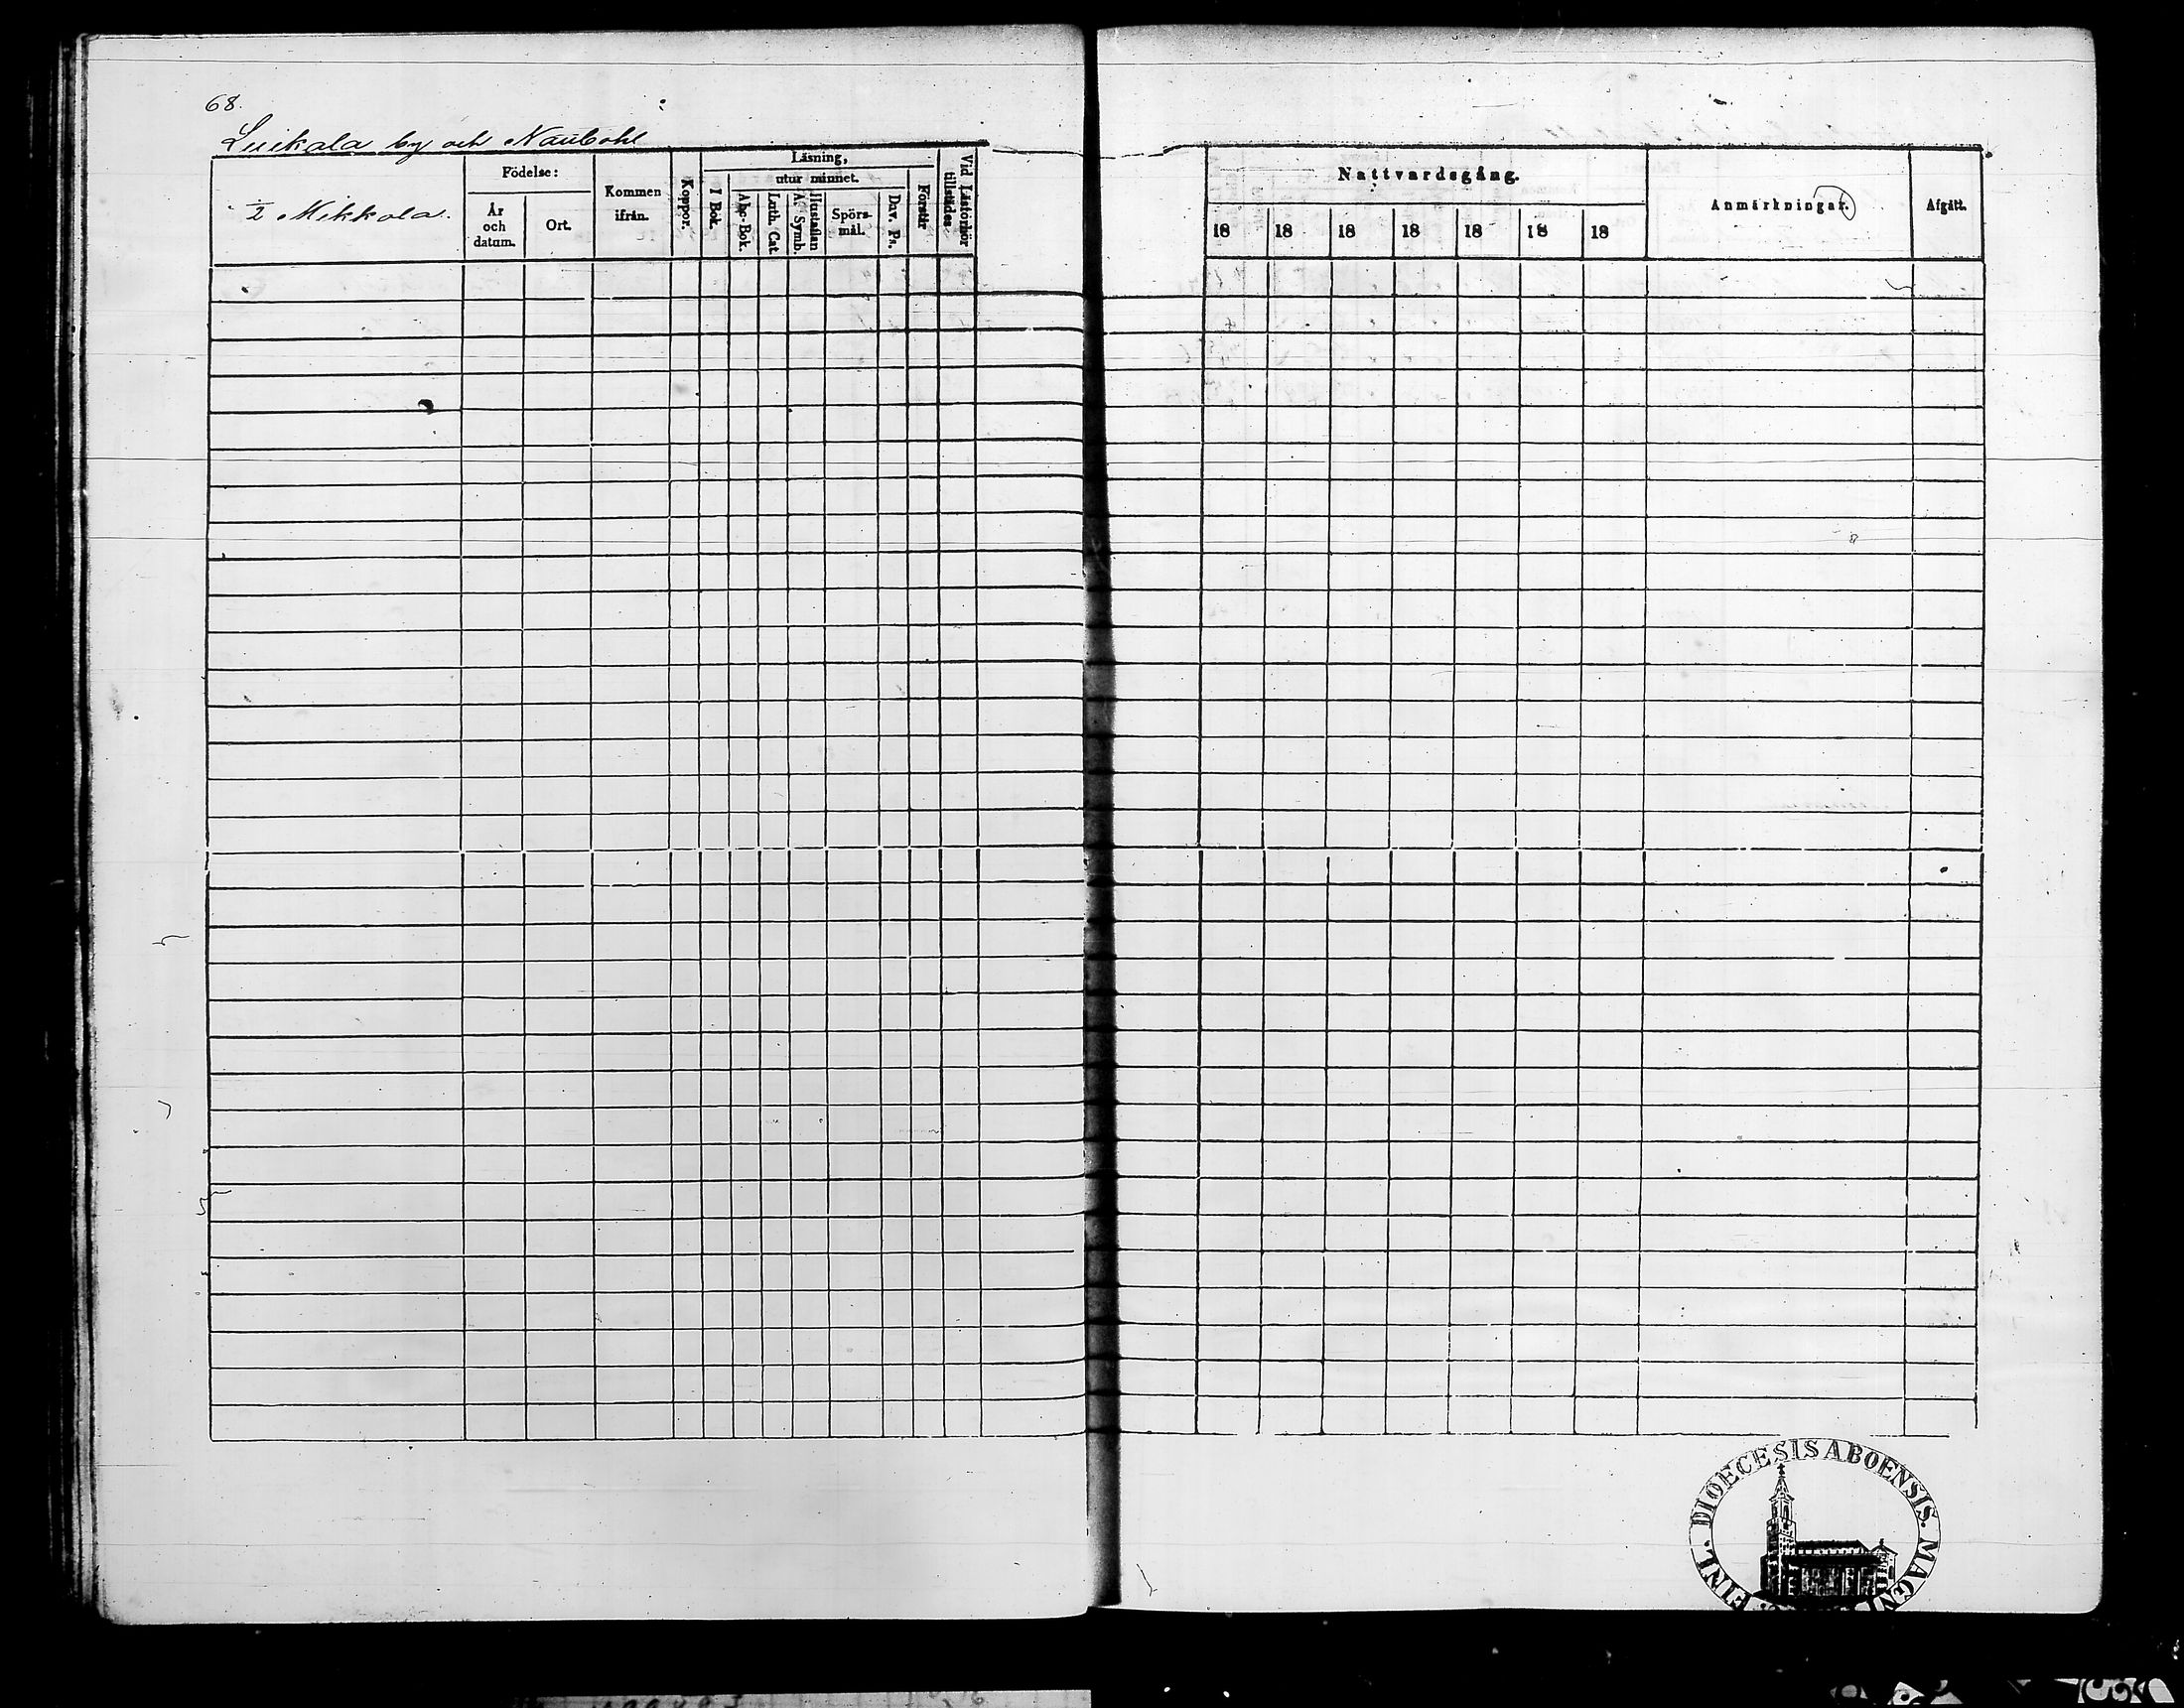 68.
Luikala by och Naubohl
½ Mikkola.
Födelse:
År och datum.
Ort.
Kommen ifrån.
Koppor.
Läsning,
I Bok.
utur minnet.
Abc-Bok.
Luth. Cat.
Hustaflan A. Symb.
Spörsmål.
Dav. Ps.
Förstår
Vid Läsförhör tillstädes
Nattvardsgång.
18 18 18 18 18 18 18
Anmärkningar.
Afgått.
FINL. DIOECESIS ABOENSIS. MAGNI